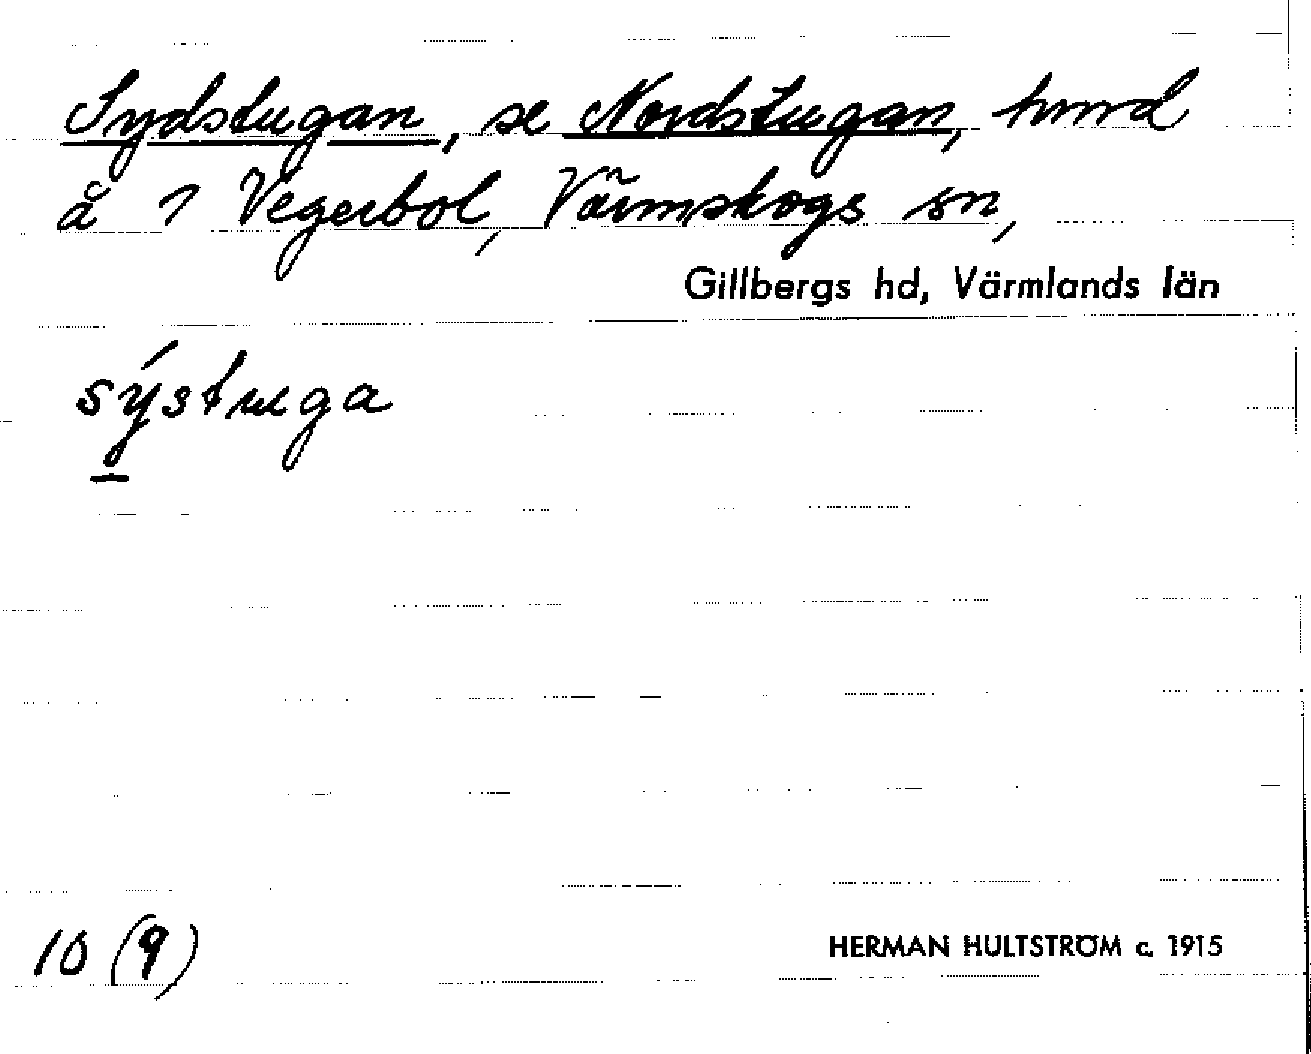 Sydstugan, se Nordstugan, hmd
å 1 Vegerbol, Värmskogs sn,
Gillbergs hd, Värmlands län
sýstuga
10 (9)
HERMAN HULTSTRÖM c. 1915